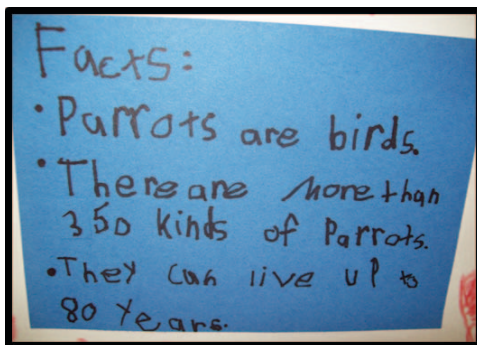 Facts:
• Parrots are birds.
• There are more than
350 kinds of Parrots.
• They can live up to
80 years.